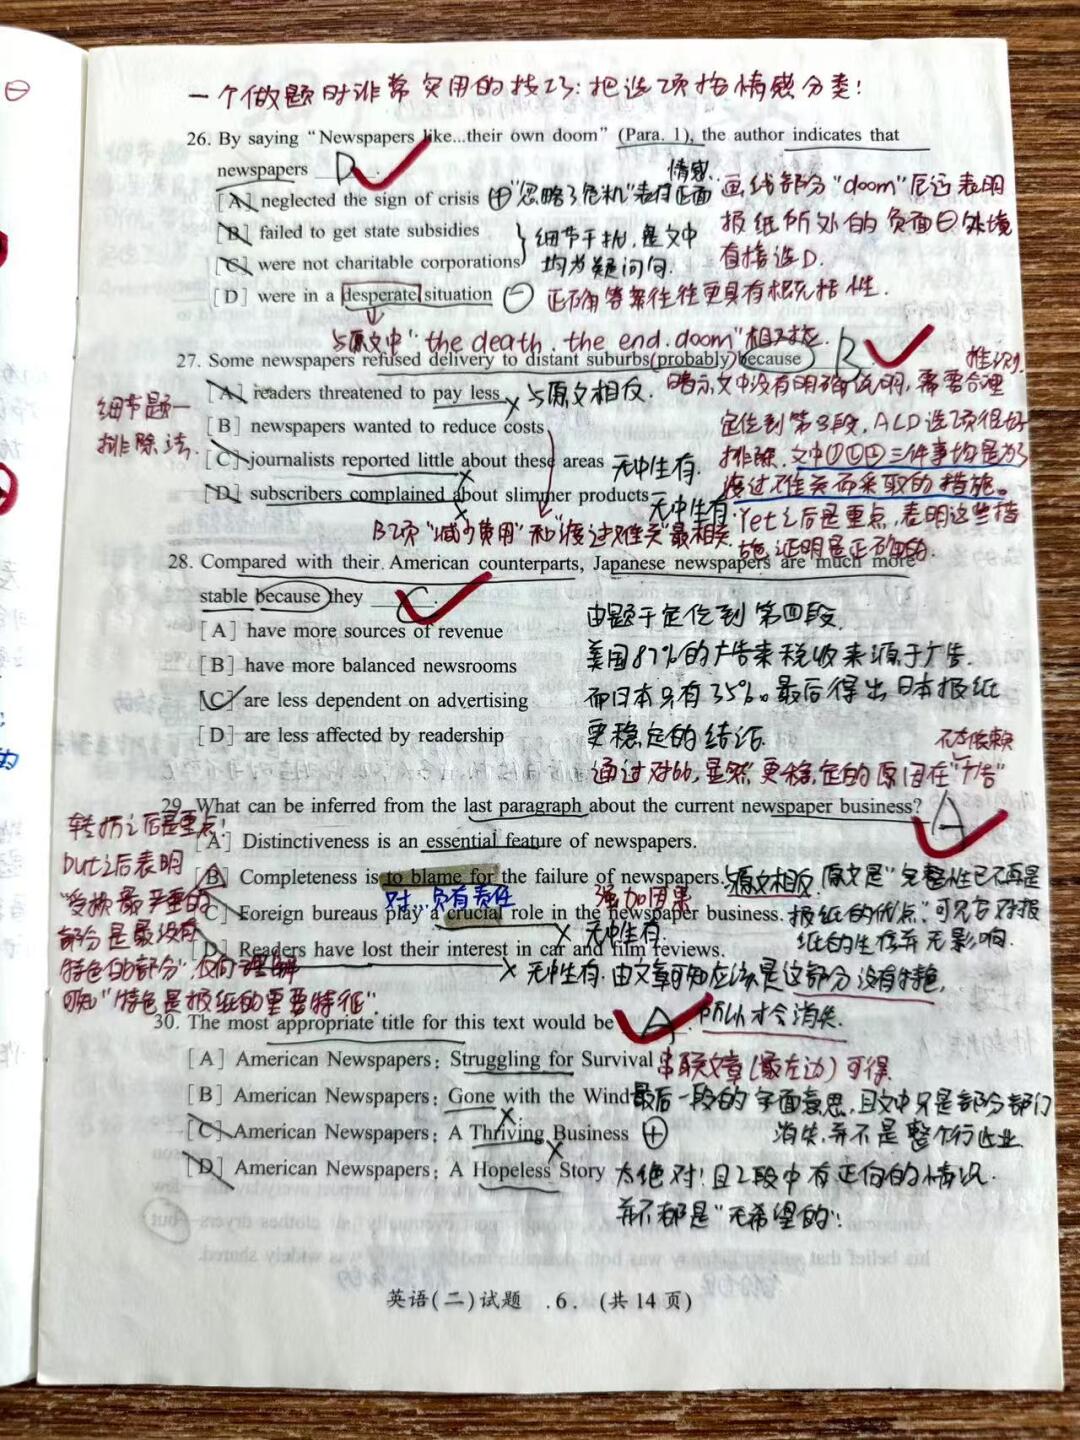 一个做题时非常实用的技巧:把选项按情感分类!
26. By saying “Newspapers like...their own doom” (Para. 1), the author indicates that
newspapers D.
[A] neglected the sign of crisis ⊕“忽略了危机”表有正面
情感.
[B] failed to get state subsidies
[C] were not charitable corporations
细节干扰,是文中
均为疑问句.
[D] were in a desperate situation ⊖ 正确答案往往更具有概括性.
画线部分“doom”厄运表明
报纸所处的负面⊖处境
直接选D.
与原文中“the death. the end. doom”相对应.
27. Some newspapers refused delivery to distant suburbs probably because B
[A] readers threatened to pay less × 与原文相反.
[B] newspapers wanted to reduce costs
[C] journalists reported little about these areas 无中生有.
[D] subscribers complained about slimmer products 无中生有.
细节题—
排除法.
推测.
暗示文中没有明确说明,需要合理
定位到第3段,ACD选项很好
排除.文中①②④三件事均是为了
渡过难关而采取的措施。
Yet之后是重点,表明这些措
施证明是正确的.
B项“减少费用”和“渡过难关”最相关.
28. Compared with their American counterparts, Japanese newspapers are much more
stable because they C.
[A] have more sources of revenue
[B] have more balanced newsrooms
[C] are less dependent on advertising
[D] are less affected by readership
由题干定位到第四段.
美国87%的广告来税收来源于广告.
而日本只有35%。最后得出日本报纸
更稳定的结论.
不太依赖
通过对比,显然,更稳定的原因在“广告”
29. What can be inferred from the last paragraph about the current newspaper business? A
[A] Distinctiveness is an essential feature of newspapers.
[B] Completeness is to blame for the failure of newspapers.
对…负有责任
强加因果
[C] Foreign bureaus play a crucial role in the newspaper business.
× 无中生有.
[D] Readers have lost their interest in car and film reviews.
× 无中生有.由文章可知应该是这部分没有特色,
所以才会消失.
与原文相反,原文是“完整性已不再是
报纸的优点”可见它对报
纸的生存并无影响.
转折之后是重点!
but之后表明
“受损最严重的
部分是最没有
特色的部分”,反向理解
可知“特色是报纸的重要特征”.
30. The most appropriate title for this text would be A.
[A] American Newspapers: Struggling for Survival 串联文章(最左边)可得.
[B] American Newspapers: Gone with the Wind 最后一段的字面意思,且文中只是部分部门
消失,并不是整个行业.
[C] American Newspapers: A Thriving Business ⊕
[D] American Newspapers: A Hopeless Story 太绝对!且2段中有正向的情况.
并不都是“无希望的”!
英语(二)试题 .6. (共14页)